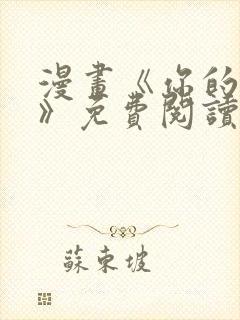 漫畫《你的
》免費閱讀
蘇東坡